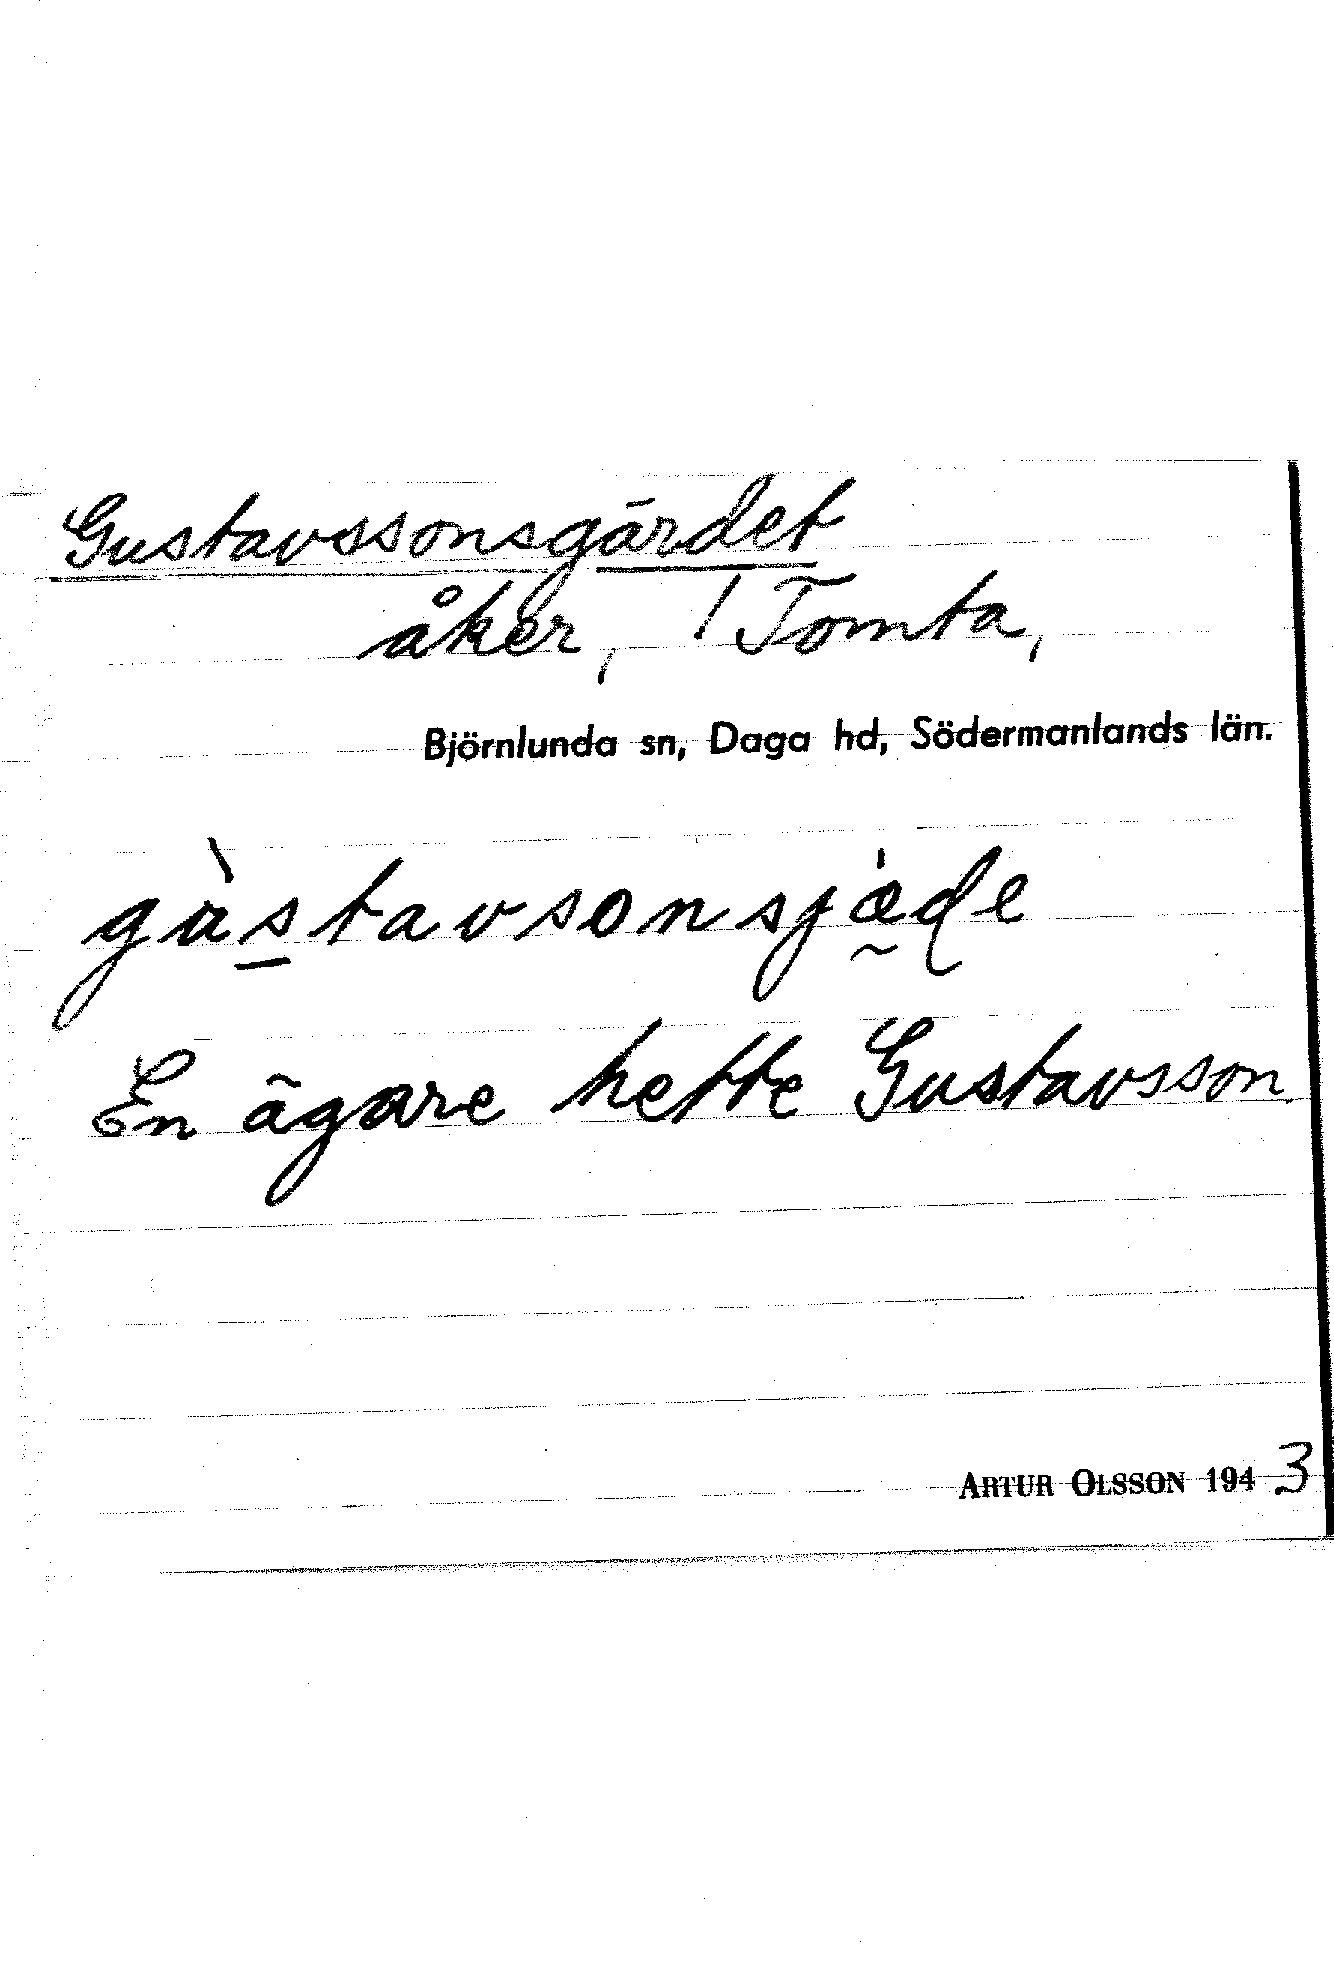 Gustavssonsgärdet
åker, / Tomta,
Björnlunda sn, Daga hd, Södermanlands län.
gùstavsonsjǽ̰de
En ägare hette Gustavsson.
ARTUR OLSSON 1943